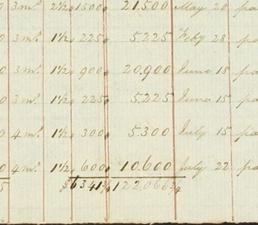 3 mo. 2½ 1500 21.500 May 20 pa
0 3 mo. 1½ 225 5.225 Feby 28 pa
0 3 mo. 1½ 900 20.900 June 15 pa
0 3 mo. 1½ 225 5.225 June 15 pa
0 4 mo. 1½ 300 5.300 July 15 pa
0 4 mo. 1½ 600 10.600 July 22 pa
5 $6341 122.066